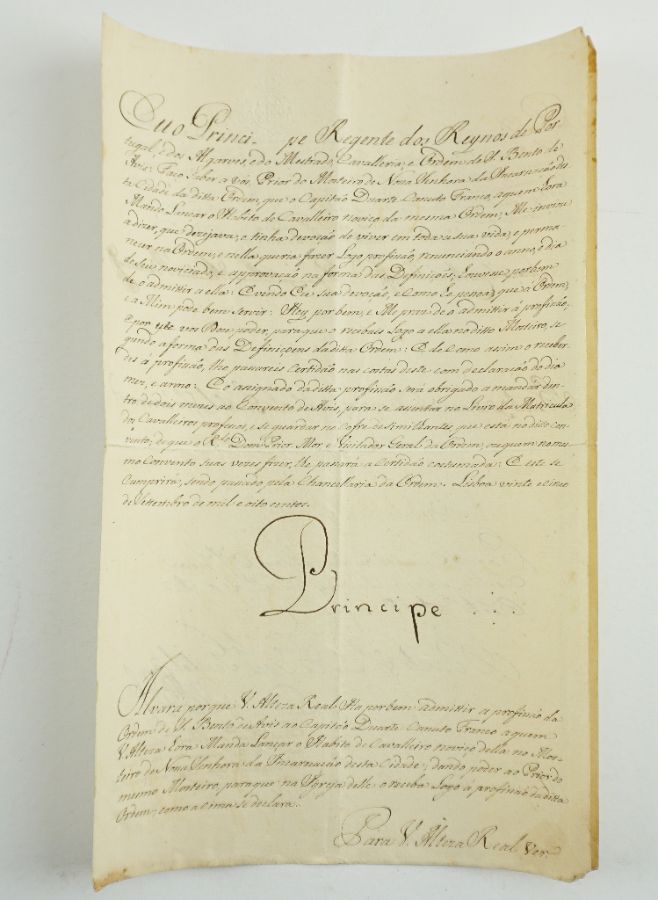 Euo Princi- pe Regente dos Reynos de Por
tugal, e dos Algarves, e do Mestrado, Cavallaria, e Ordem de S. Bento de
Aviz. Faço Saber a vós Prior do Mosteiro de Nossa Senhora da Incarnação des
ta Cidade da ditta Ordem, que o Capitaõ Duarte Canuto Franco, aquem Eora
Mando Lançar o Habito de Cavalleiro noviço da mesma Ordem; Me inviou
a dizer, que dezejava, e tinha devoçaõ de viver em toda a sua vida, e perma-
necer na Ordem, e nella queria fazer Logo profissaõ, renunciando o anno, e dia
de seu noviciado, e approvaçaõ na forma das Definiçoẽs, houvesse por bem
de o admittir a ella: E vendo Eu sua devoçaõ, e como he pessoa, que á Ordem,
e a Mim pode bem Servir: Hey por bem, e Me praz de o admittir á profissaõ;
E por este vos Dou poder, para que o recebais Logo a ella no ditto Mosteiro, se
gundo a forma das Definiçoens da ditta Ordem: E de como assim o receber
des á profissaõ, lhe passareis certidaõ nas costas deste com declaraçaõ do dia
mez, e anno: E o assignado da ditta profissaõ será obrigado a mandár den-
tro de dois mezes ao Convento de Aviz, para se assentar no Livro da Matricula
dos Cavalleiros professos, e se guardar no Cofre de similhantes que está no dito con
vento; de que o R.do Dom Prior Mór e Visitador Geral da Ordem, ou quem no mes
mo Convento suas vezes fizer, lhe passará a Certidaõ costumada: E este se
cumprirá, sendo passado pela Chancellaria da Ordem. Lisboa vinte e cinco
de Settembro de mil e oito centos.
Principe
Alvará porque V. Alteza Real Ha por bem admittir á profissaõ da
Ordem de S. Bento de Aviz ao Capitaõ Duarte Canuto Franco aquem
V. Alteza Eora Manda Lançar o Habito de Cavalleiro noviço della no Mos-
teiro de Nossa Senhora da Incarnação desta Cidade; dando poder ao Prior do
mesmo Mosteiro, para que na Igreja delle o receba Logo á profissaõ da ditta
Ordem; como acima se declara.
Para V. Alteza Real Ver.